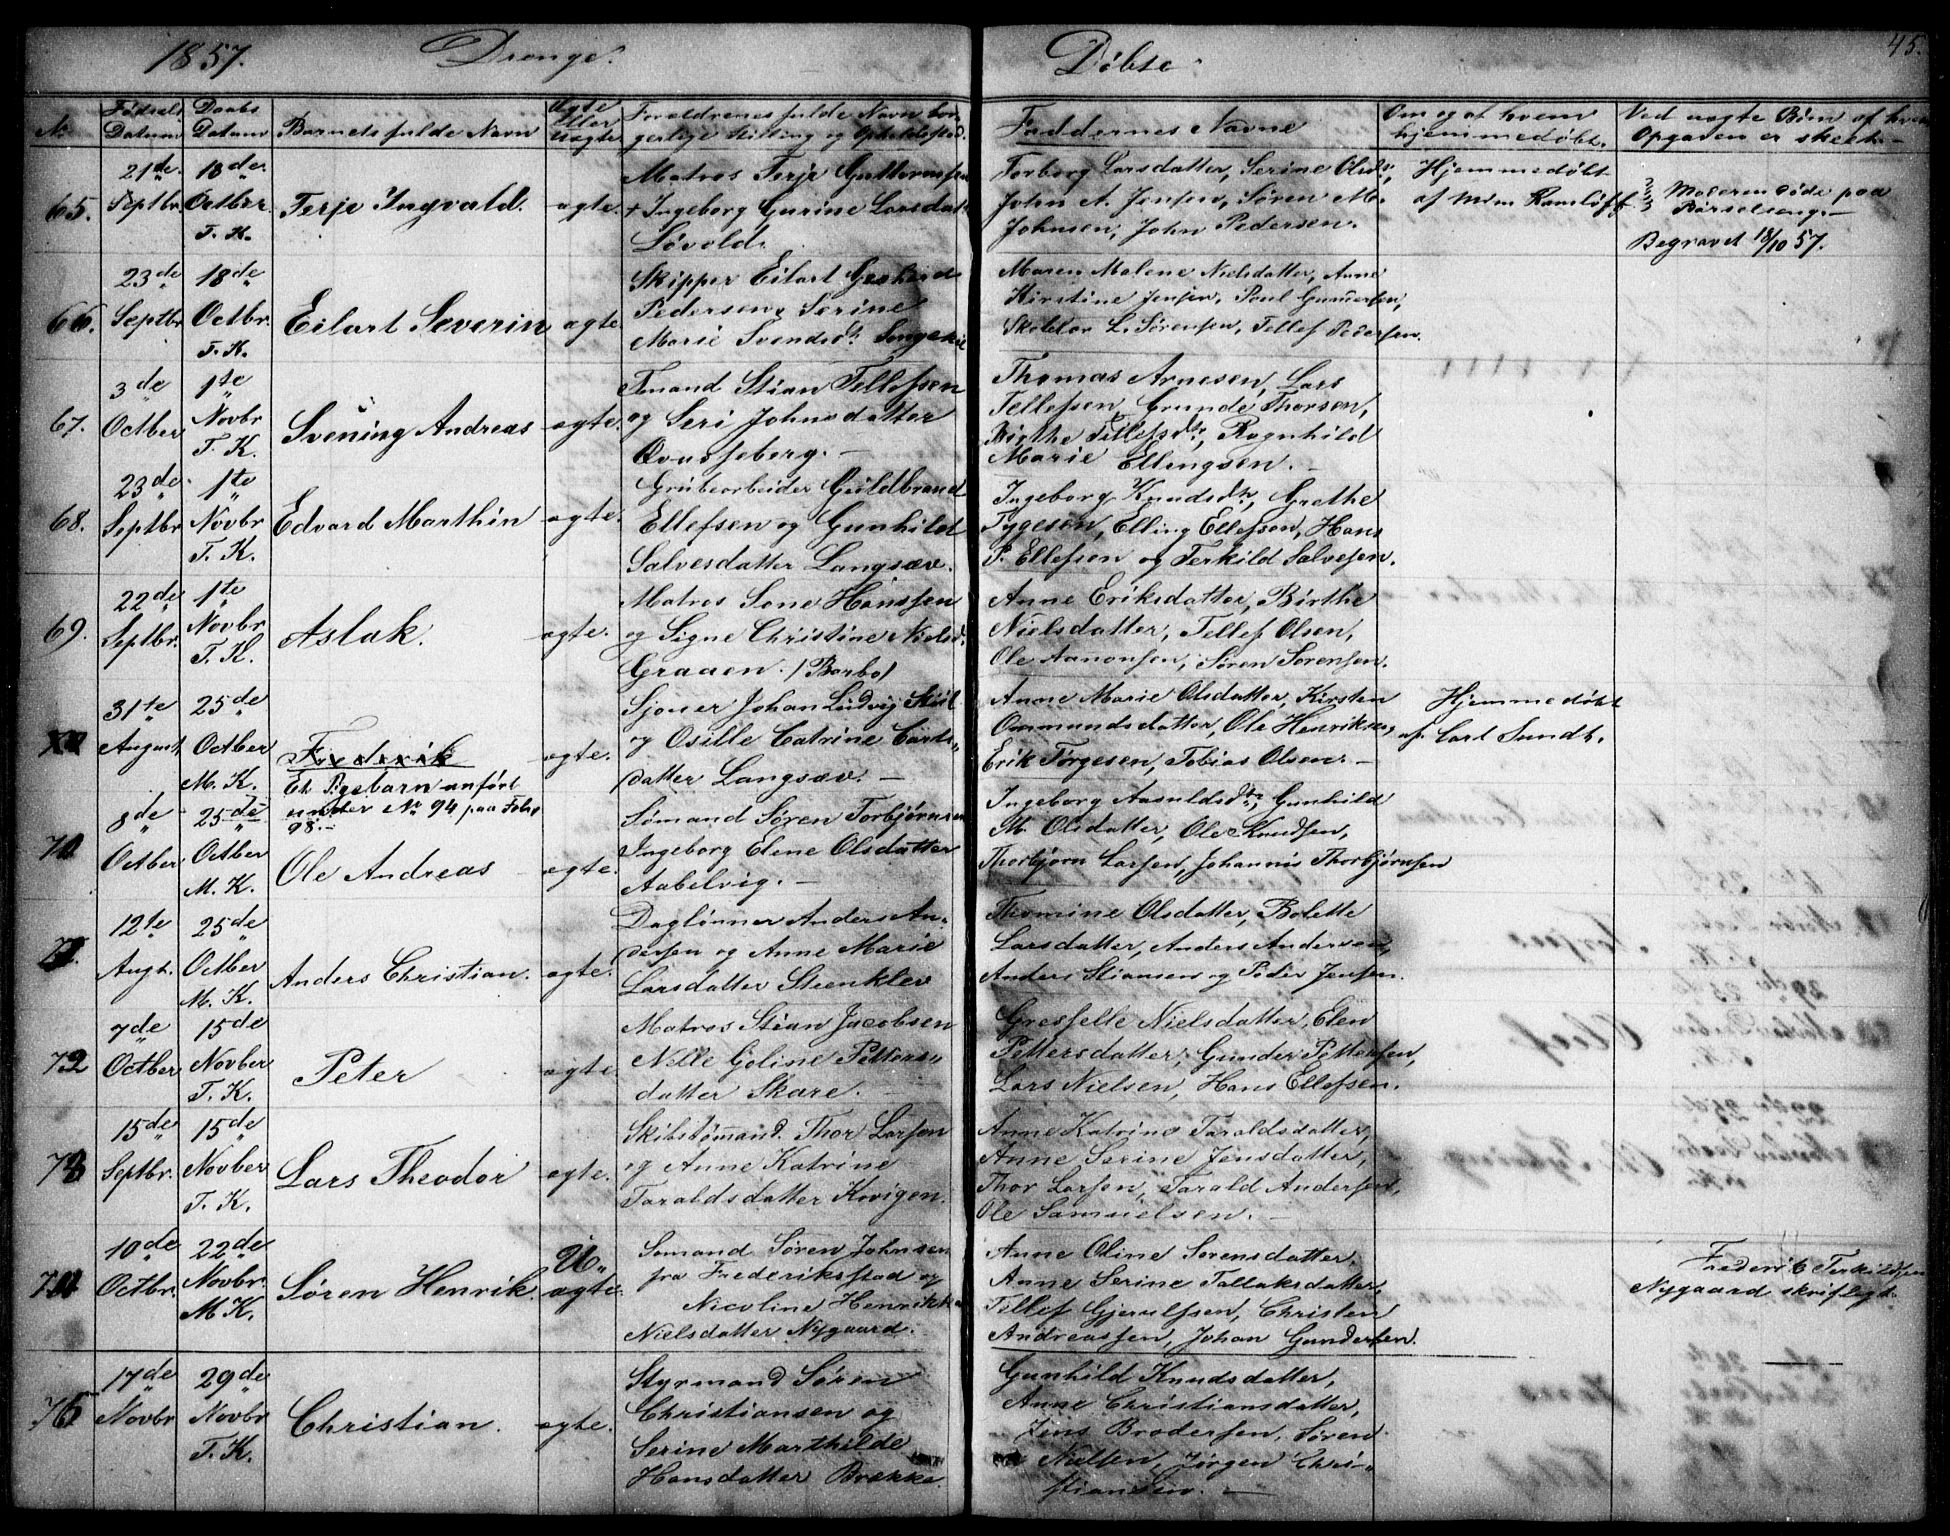 1857. Drenge. Døbte. 45.
No Fødsels Datum Daabs Datum Barnets fulde Navn Ægte eller Uægte Forældrenes fulde Navn borgerlige Stilling og Opholdsted. Faddernes Navne Om og af hvem hjemmedøbt. Ved uægte Børn af hvem Opgaven er skeet.
65. 21de Septbr. 18de Octber. T. K. Terje Ingvald. ægte.
Matros Terje Guttormsen
+ Ingeborg Gurine Larsdatr
Løvold.
Torborg Larsdatter, Serine Olsdr,
John A. Jensen, Søren M.
Johnsen, John Pedersen.
Hjemmedøbt
af Mdm Ramløff
Moderen døde paa
Barselseng.
Begravet 18/10 57.
66. 23de Septbr. 18de Octbr. T. K. Eilart Severin ægte.
Skipper Eilart Gerhard
Pedersen, Serine
Marie Svendsdtr Songekil
Maren Malene Nielsdatter, Anne
Kirstine Jensen, Poul Gundersen,
L. Sørensen, Tellef Pedersen.
67. 3de Octber 1te Novbr T. K. Svening Andreas ægte.
Stian Tellefsen
og Seri Johnsdatter

Thomas Arnesen, Lars
Tellefsen, Grunde Thorsen,
Birthe Tellefsdtr, Ragnhild
Marie Ellingsen.
68. 23de Septbr 1te Novbr T. K. Edvard Marthin ægte.
Grubearbeider Guldbrand
Ellefsen og Gunhild
Salvesdatter Langsæv.
Ingeborg Knudsdtr, Grethe
Tygesen, Elling Ellefsen, Hans
P. Ellefsen og Terkild Salvesen.
69. 22de Septbr. 1te Novbr. T. K. Aslak. ægte.
Matros Sone Hanssen
og Signe Christine Nielsd.
Graaen. (Barbo)
Anne Eriksdatter, Birthe
Nielsdatter, Tellef Olsen,
Ole Aanonsen, Søren Sørensen.
31te August 25de Octber M. K. Frederik ægte.
Et Pigebarn anført
under No 94 paa Folio
98.
Johan Ludvig
og Osille Catrine Carls-
datter Langsæv.
Anne Marie Olsdatter, Kirsten
Ommundsdatter, Ole Henriksen,
Erik Tørgesen, Tobias Olsen.
Hjemmedøbt
af Carl Sundt.
70. 8de Octber 25de Octber M. K. Ole Andreas ægte.
Sømand Søren Torbjørnsen
Ingeborg Elene Olsdatter
Aabelvig.
Ingeborg Aasuldsdtr, Gunhild
M. Olsdatter, Ole Knudsen,
Thorbjørn Larsen, Johannis Thorbjørnsen
71. 12te Augt. 25de Octber M. K. Anders Christian. ægte.
Daglønner Anders An-
dersen og Anne Marie
Larsdatter Steenklev
Thomine Olsdatter, Bolette
Larsdatter, Anders Andersen,
Anders Stiansen og Peder Jensen.
72 7de Octber 15de Novber T. K. Peter ægte
Matros Stian Jacobsen
Nille Goline Petters-
datter Skare.
Gresselle Nielsdatter, Elen
Pettersdatter, Gunder Pettersen,
Lars Nielsen, Hans Ellefsen.
73 15de Septbr. 15de Novber T. K. Lars Theodor ægte.
Skibstømmand. Thor Larsen
og Anne Katrine
Taraldsdatter Kvigen.
Anne Katrine Taraldsdatter,
Anne Serine Jensdatter,
Thor Larsen, Tarald Andersen,
Ole Samuelsen.
74 10de Octbr. 22de Novbr. M. K. Søren Henrik. U-ægte.
Sømand Søren Johnsen
fra Frederikstad og
Nicoline Henrikke
Nielsdatter Nygaard.
Anne Oline Sørensdatter,
Anne Serine Tallaksdatter,
Tellef Gjerulfsen, Christen
Andreassen, Johan Gundersen.
Frederik Terkildsen
Nygaard skriftligt.
75 17de Novbr 29de Novbr T. K. Christian. ægte.
Styrmand Søren
Christiansen og
Serine Marthilde
Hansdatter Brekke.
Gunhild Knudsdatter,
Anne Christiansdatter,
Jens Brodersen, Søren
Nielsen, Jørgen Chri-
stiansen.